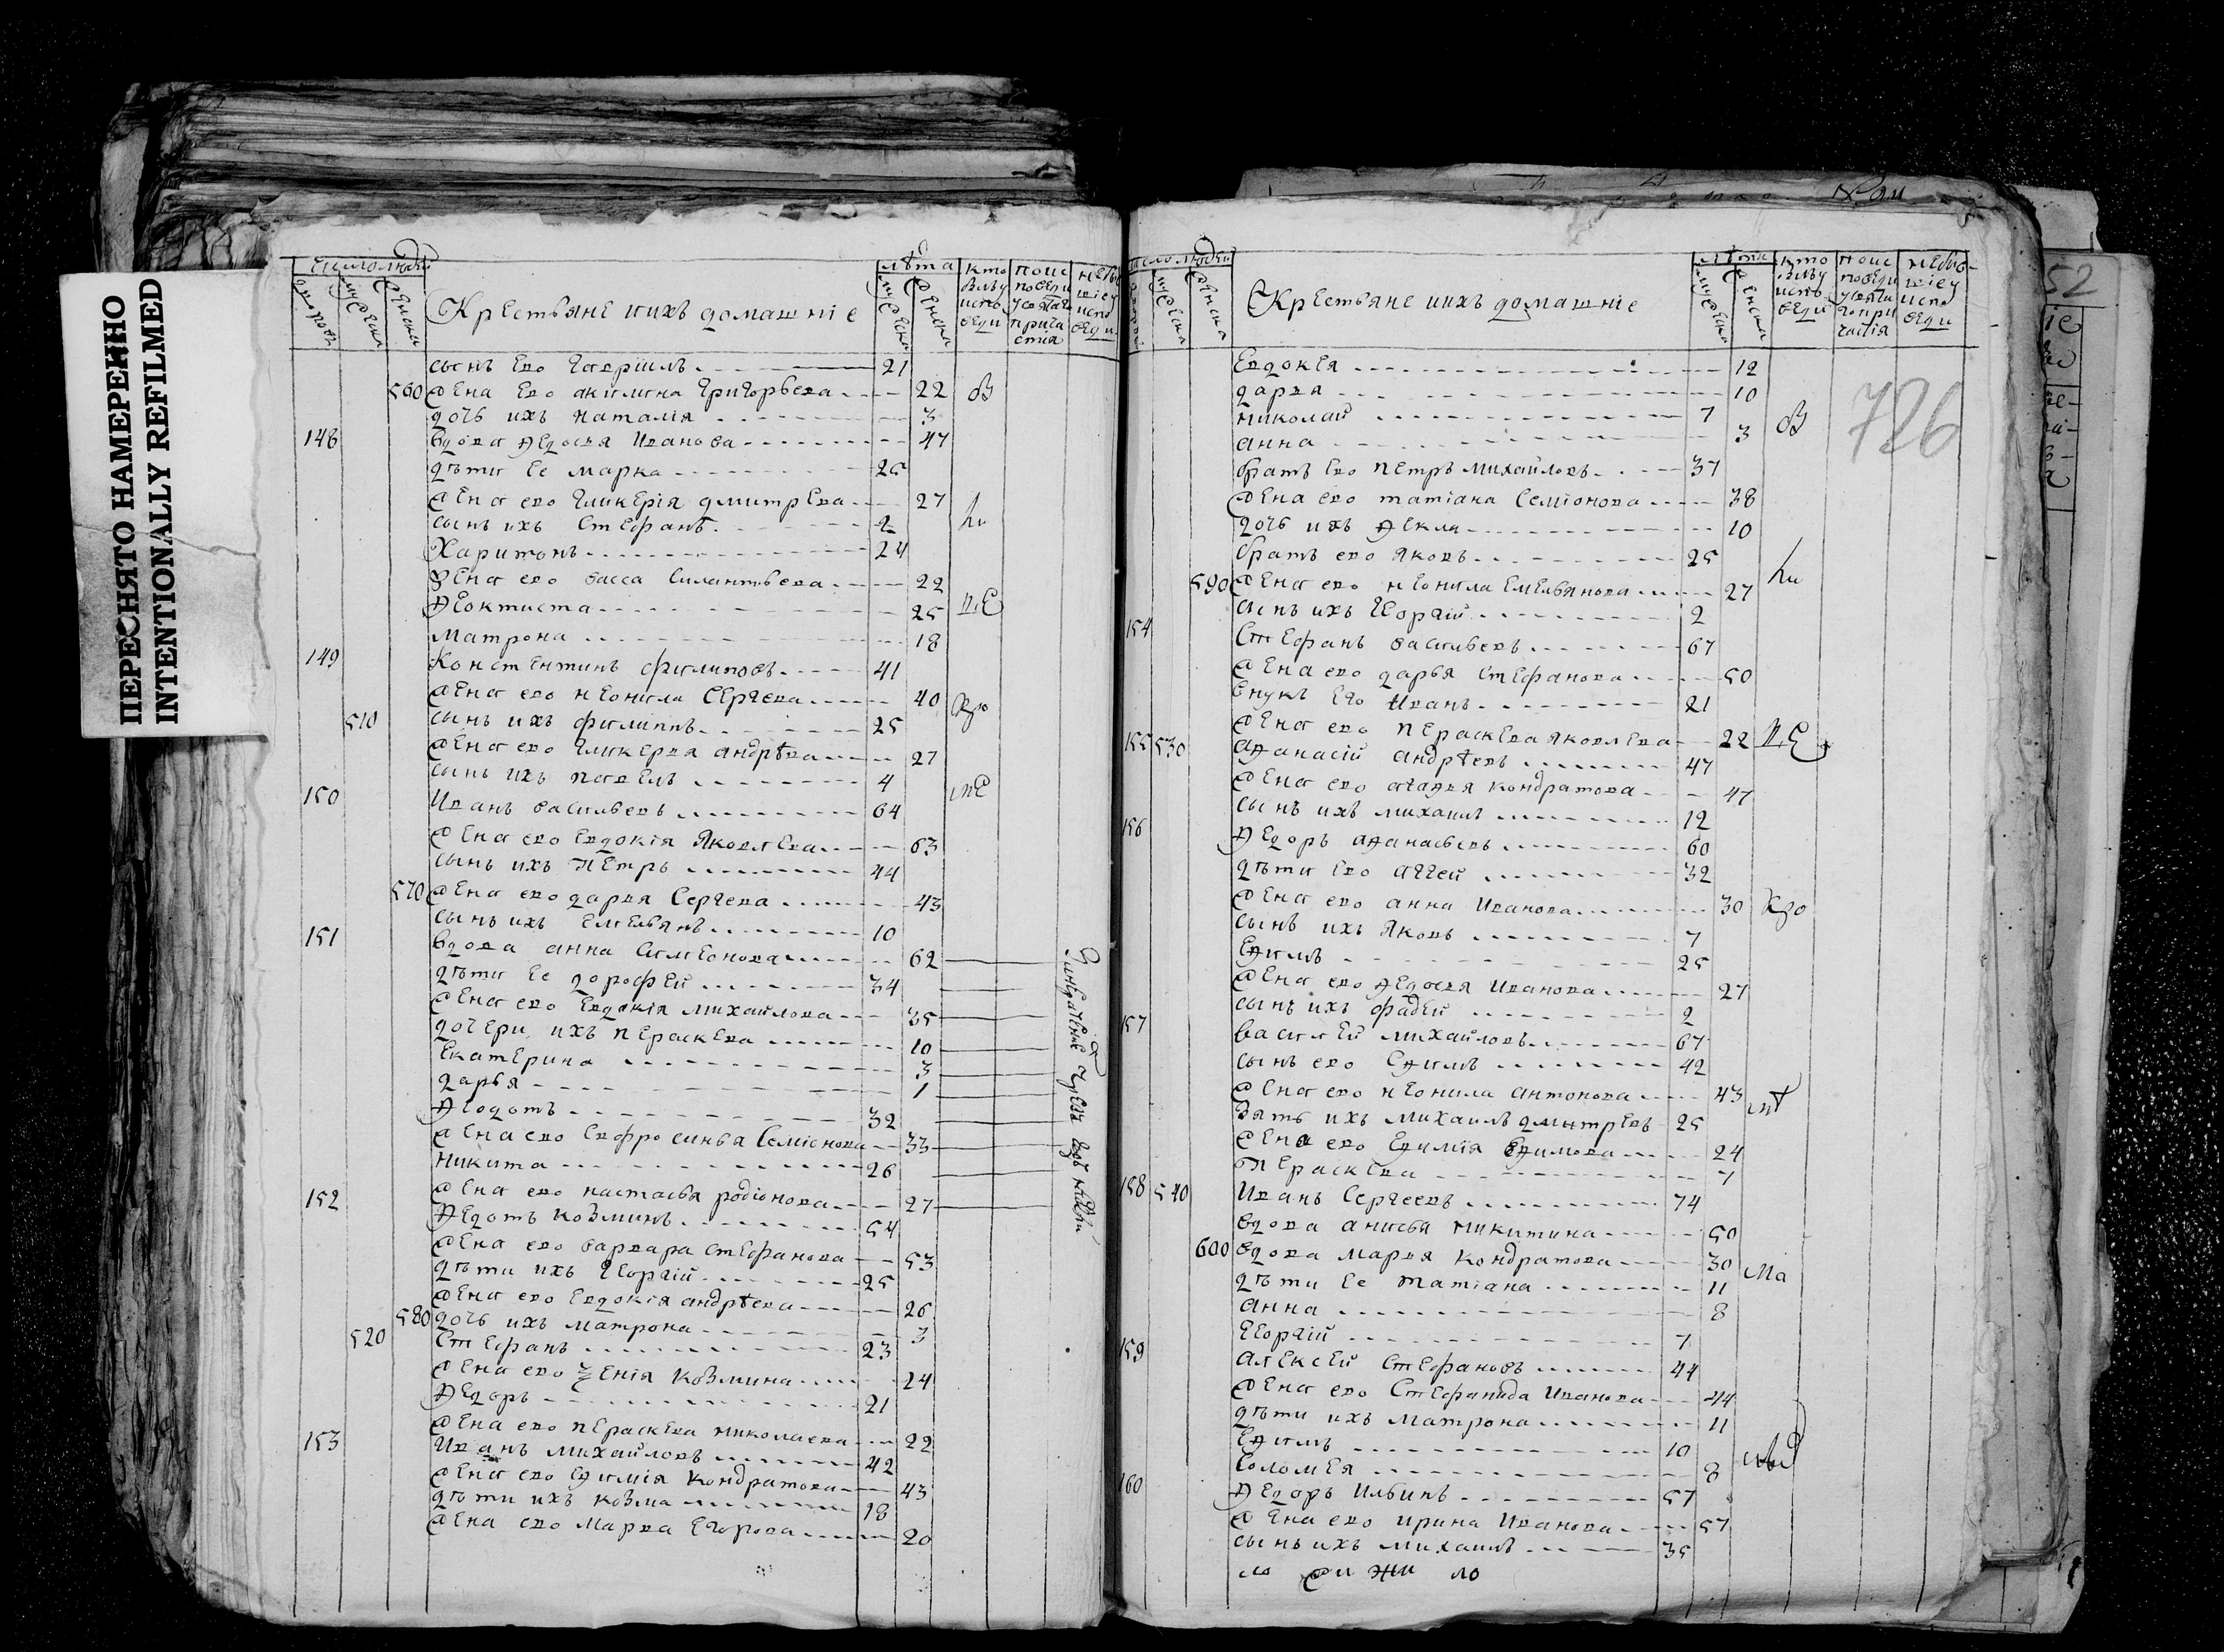 ПЕРЕСНЯТО НАМЕРЕННО
INTENTIONALLY REFILMED
число людей лѣта
Крестьяне и ихъ домашніе
сынъ ево Гавріилъ 21
560 жена ево акилина Григорьева 22
дочь ихъ наталія 3
148 вдова Ѳедосья Иванова 47
дѣти ее марка 25
жена ево Гликерія дмитрева 27
сынъ ихъ Стефанъ 2
Харитонъ 24
жена ево васса Силантьева 22
Ѳеоктиста 25
матрона 18
149 Констентинъ филиповъ 41
жена ево неонила Сергева 40
510 сынъ ихъ филиппъ 25
жена ево гликерья андрѣва 27
сынъ ихъ павелъ 4
150 Иванъ васильевъ 64
жена ево евдокія Яковлева 63
сынъ ихъ Петръ 44
570 жена ево дарья Сергева 43
сынъ ихъ Емельянъ 10
151 вдова анна симеонова 62
дѣти ее дорофей 34
жена ево Евдокія михайлова 35
дочери ихъ Праскева 10
Екатерина 3
дарья 1
Ѳеодотъ 32
жена ево Евфросинья Семіонова 33
никита 26
жена ево настасья родіонова 27
152 Ѳедотъ козминъ 54
жена ево варвара стефанова 53
дѣти ихъ Георгій 25
жена ево Евдокія андрѣева 26
580 дочь ихъ матрона 3
520 Стефанъ 23
жена ево Ѯенія козмина 24
Ѳедоръ 21
жена ево пераскева николаева 22
153 Иванъ михайловъ 42
жена ево Еѳимія кондратова 43
дѣти ихъ козма 18
жена ево марва Егорова 20
число людей лѣта
Крестьяне и ихъ домашніе
Евдокѣя 12
дарья 10
николай 7
анна 3
726
братъ ево петръ михайловъ 37
жена ево татіана Семіонова 38
дочь ихъ Ѳекла 10
братъ ево яковъ 25
590 жена ево неонила Емельянова 27
сынъ ихъ Георгій 2
154 Стефанъ васильевъ 67
жена ево дарья стефанова 50
внукъ его Иванъ 21
жена ево пераскева яковлева 22
155 530 аѳанасій андрѣевъ 47
жена ево агаѳья кондратова 47
сынъ ихъ михаилъ 12
156 Ѳедоръ аѳанасьевъ 60
дѣти ево аггей 32
жена ево анна Иванова 30
сынъ ихъ яковъ 7
Еѳимъ 25
жена ево Ѳедосья Иванова 27
сынъ ихъ фадей 2
157 василей михайловъ 67
сынъ ево Еѳимъ 42
жена ево неонила антонова 43
зять ихъ михаилъ дмитревъ 25
жена ево Еѳимія Еѳимова 24
Пераскева 7
158 540 Иванъ Сергеевъ 74
вдова анисья никитина 50
600 вдова марья кондратова 30
дѣти ее татіана 11
анна 8
Георгій 7
159 алексей стефановъ 44
жена ево Стефанида Иванова 44
дѣти ихъ матрона 11
Еѳимъ 10
Соломея 8
160 Ѳедоръ Ильинъ 57
жена ево ирина Иванова 57
сынъ ихъ михаилъ 35
52